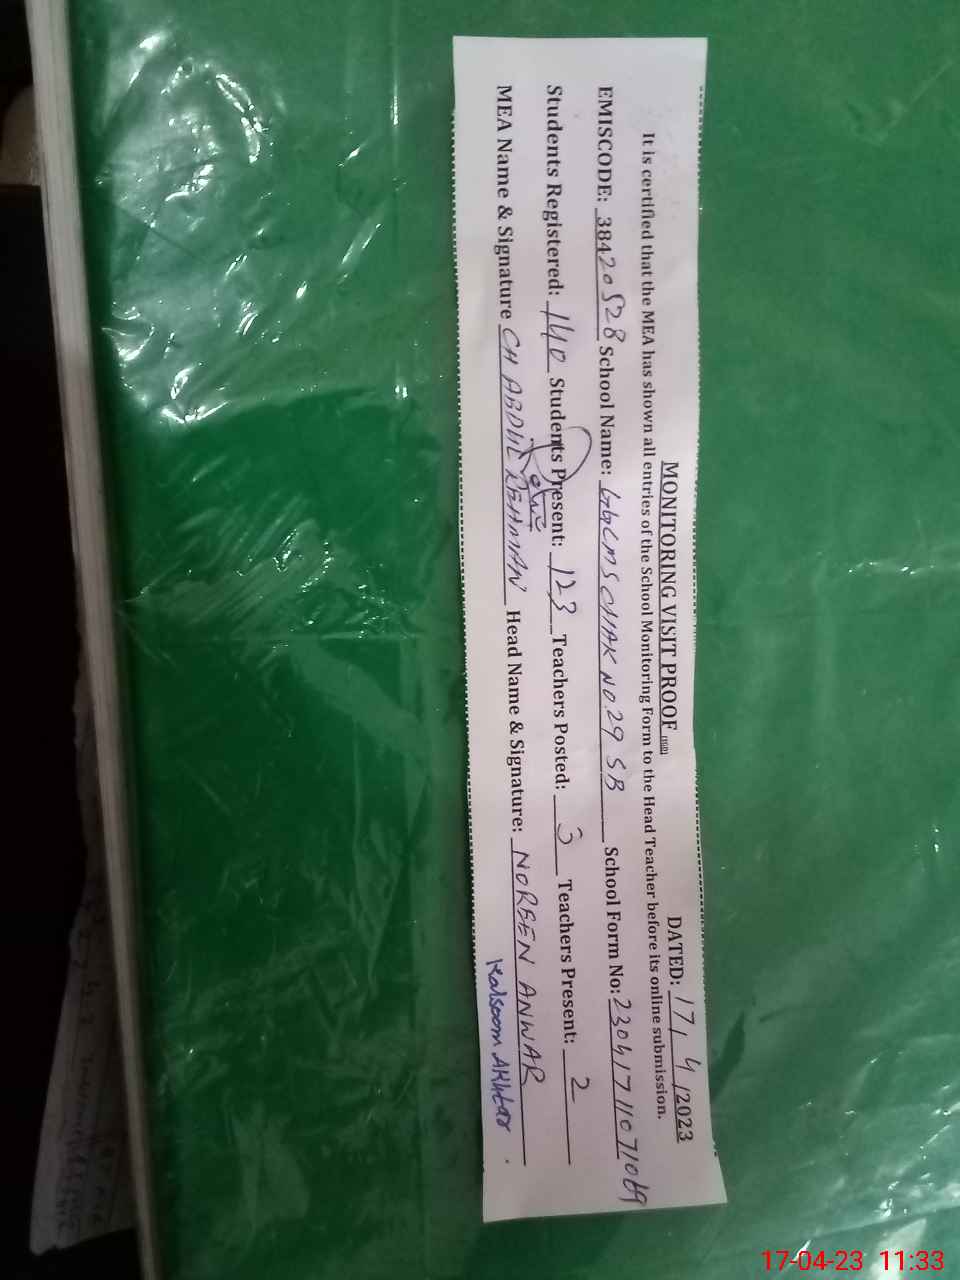 MONITORING VISIT PROOF DATED: 17, 4 /2023
It is certified that the MEA has shown all entries of the School Monitoring Form to the Head Teacher before its online submission.
EMISCODE: 38420528 School Name: GGCMS CHAK NO.29 SB School Form No: 23041711071069
Students Registered: 140 Students Present: 123 Teachers Posted: 3 Teachers Present: 2
MEA Name & Signature CH ABDUL REHMAN Head Name & Signature: NOREEN ANWAR
Kalsoom AKHtar
17-04-23 11:33